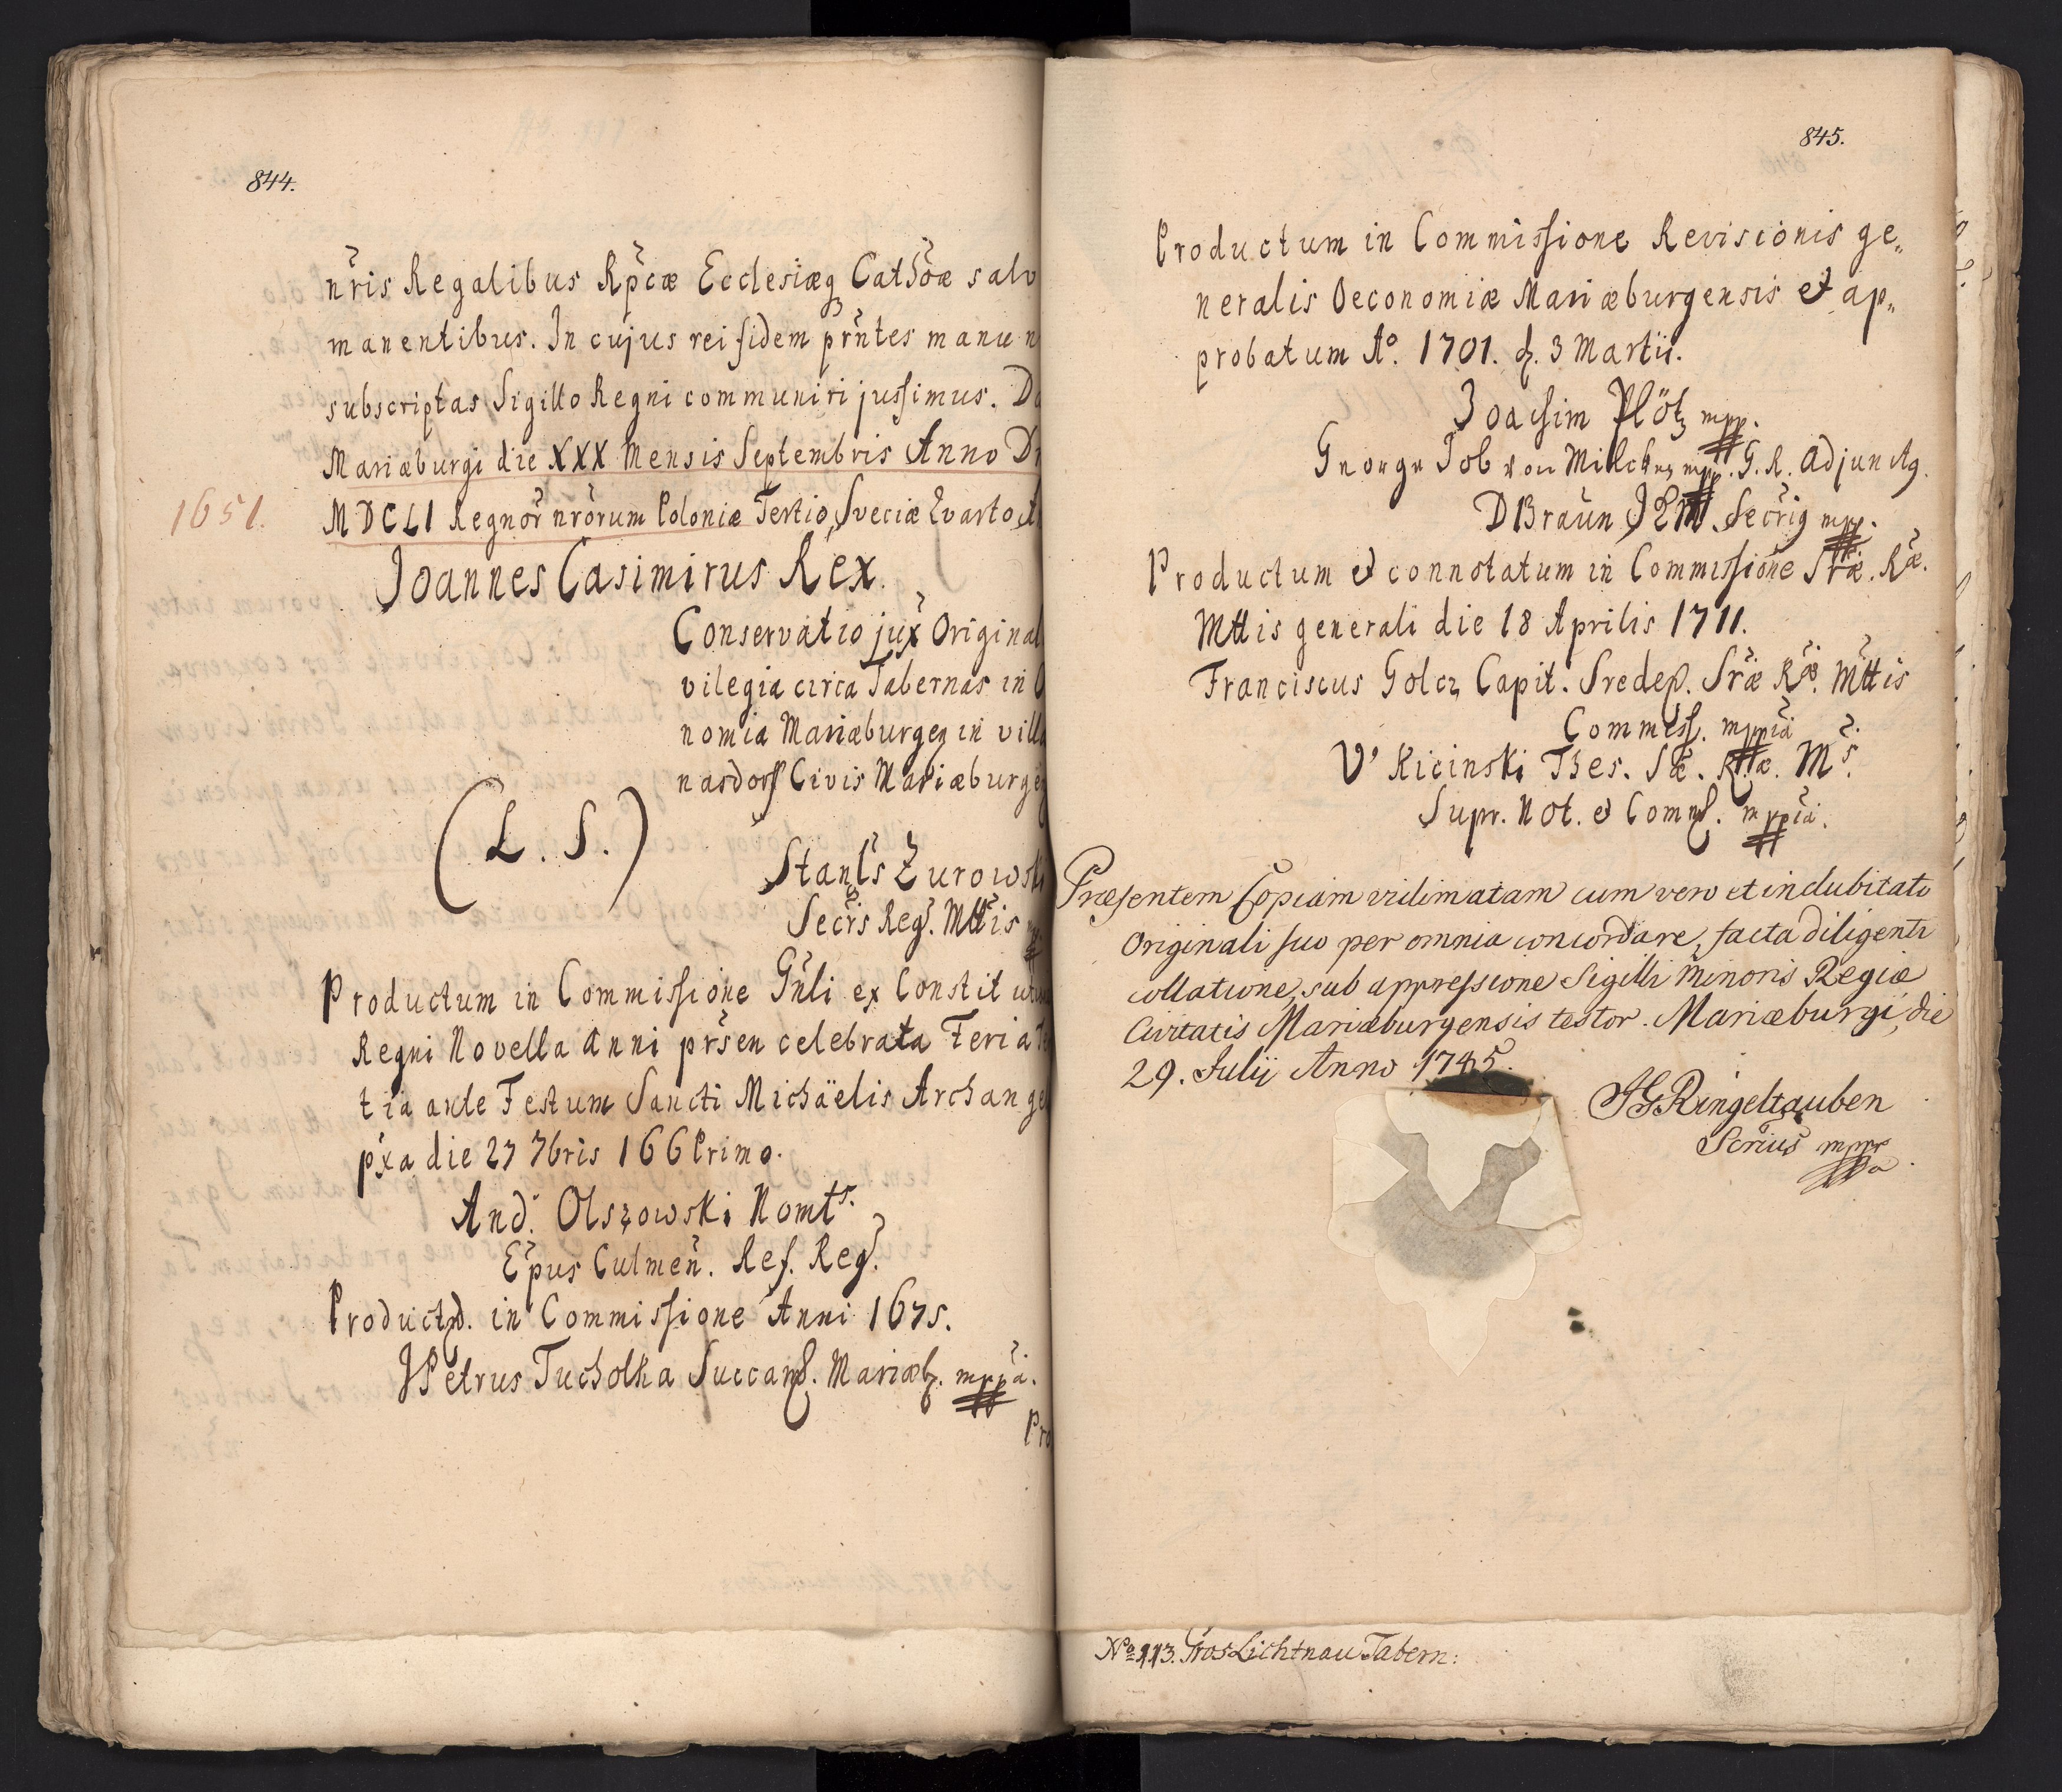 844.
nr̃is Regalibus Rp̃cæ Ecclesiæq Cathõæ salv
manentibus. In cujus rei fidem pr̃ntes manu n
subscriptas Sigillo Regni communiri jussimus. Da
Mariæburgi die XXX Mensis Septembris Anno Dn
1651.
MDCLI Regnor̃ nr̃orum Poloniæ Tertio, Sveciæ Qvarto A
Joannes Casimirus Rex.
Conservatio jux̃ Original
vilegia circa Tabernas in
nomia Mariæburgeñ in villa
nasdorff Civis Mariæburge
(L. S.)
Stanĩs Żurowski
Secr̃is Reg̃. Mttis
Productum in Commissione Gñli ex Constit
Regni Novella Anni pr̃sen celebrata Feria
tia ante Festum Sancti Michäelis Archange
px̃a die 27 7bris 166 Primo.
And. Olszowski Nomts.
Ep̃us Culmeñ. Ref. Reg̃.
Product. in Commissione Anni 1675.
JPetrus Tucholka Succam. Mariæb. mppã.
Pro
845.
Productum in Commissione Revisionis ge„
neralis Oeconomiæ Mariæburgensis et ap„
probatum Aº. 1701. d. 3 Martii.
Joachim Plötz mpp.
George Job von Milckau mpp. G. R. Adjunctg.
DBraun JEM. Secrig mpp.
Productum et connotatum in Commissione Sr̃æ. R̃æ.
Mttis generali die 18 Aprilis 1711.
Franciscus Golcz Capit. Sredep. Sr̃æ R̃æ. Mttis
Commiss. mppiã
V' Kicinski Thes. Sæ. Ræ. Ms.
Supr. Not. et Comms. mppiã.
Præsentem Copiam vidimatam cum vero et indubitato
Originali suo per omnia concordare, facta diligenti
collatione, sub appressione Sigilli Minoris Regiæ
Civitatis Mariæburgensis testor. Mariæburgi, die
29. Julii Anno 1745.
JGRingeltauben
Scrius mppr
a
Nº 113. Gros Lichtnau Tabern: